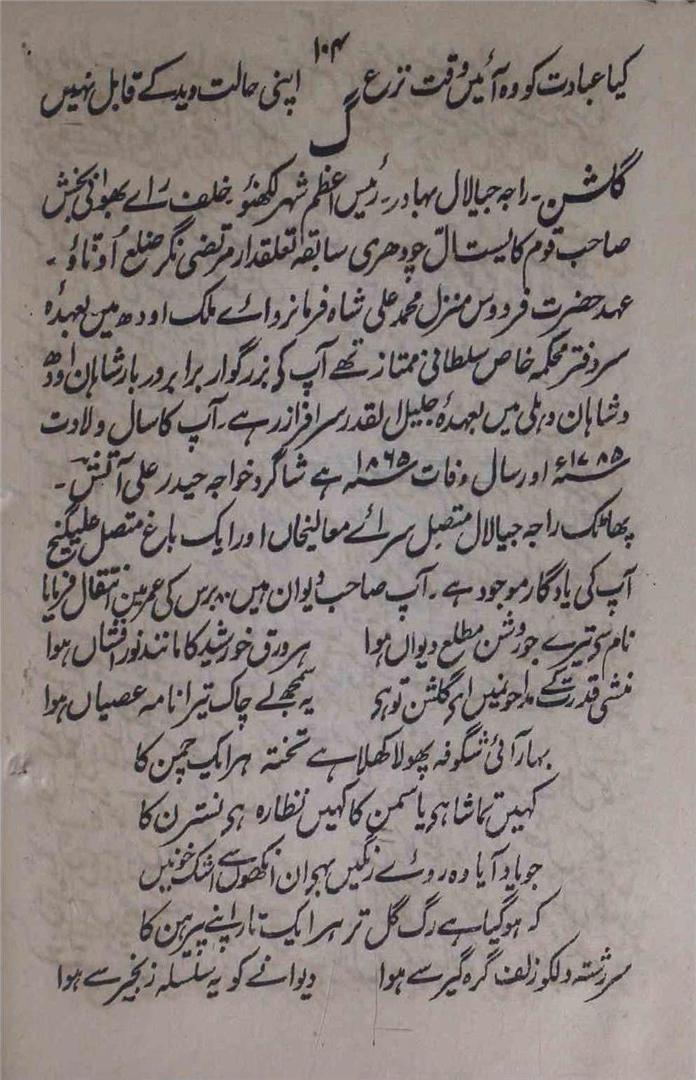 ۱۰۴
کیا عبادت کو وہ آئیں وقت نزع اپنی حالت دید کے قابل نہیں
گ
گلشن۔ راجہ جیالال بہادر۔ رئیس اعظم شہر لکھنؤ۔ خلف رائے بھوانی بخش
صاحب قوم کایستہ چودھری سابقہ تعلقدار مرتضیٰ نگر ضلع اُوناؤ۔
عہد حضرت فردوس منزل محمد علی شاہ فرمانروائے ملک اودھ میں بعہدۂ
سر دفتر محکمہ خاص سلطانی ممتاز تھے آپ کی بزرگوار برابر دربار شاہان اودھ
و شاہان دہلی میں بعہدۂ جلیل القدر سرافراز رہے۔ آپ کا سال ولادت
۱۷۸۵ء اور سال وفات ۱۸۶۵ء ہے شاگرد خواجہ حیدر علی آتش۔
پھاٹک راجہ جیالال متصل سرائے معالیخاں اور ایک باغ متصل علیگنج
آپ کی یادگار موجود ہے۔ آپ صاحب دیوان ہیں ۸۰ برس کی عمر میں انتقال فرمایا
نام سی تیرے جو روشن مطلع دیواں ہوا ہر ورق خورشید کا مانند نور افشاں ہوا
منشی قدرت کے مداحونمیں ای گلشن تو ہی یہ سمجھ لے چاک تیرا نامہ عصیاں ہوا
بہار آئی شگوفہ پھولا کھلا ہے تختہ ہر ایک چمن کا
کہیں تماشا ہی یاسمن کا کہیں نظارہ ہی نسترن کا
جو یاد آیا وہ روئے رنگیں بہو ان انکھوں سے اشک خونیں
کہ ہو گیا ہے رگ گل تر ہر ایک تار اپنے پیرہن کا
سر رشتہ دلکو زلف گرہ گیر سے ہوا دیوانے کو یہ سلسلہ زنجیر سے ہوا